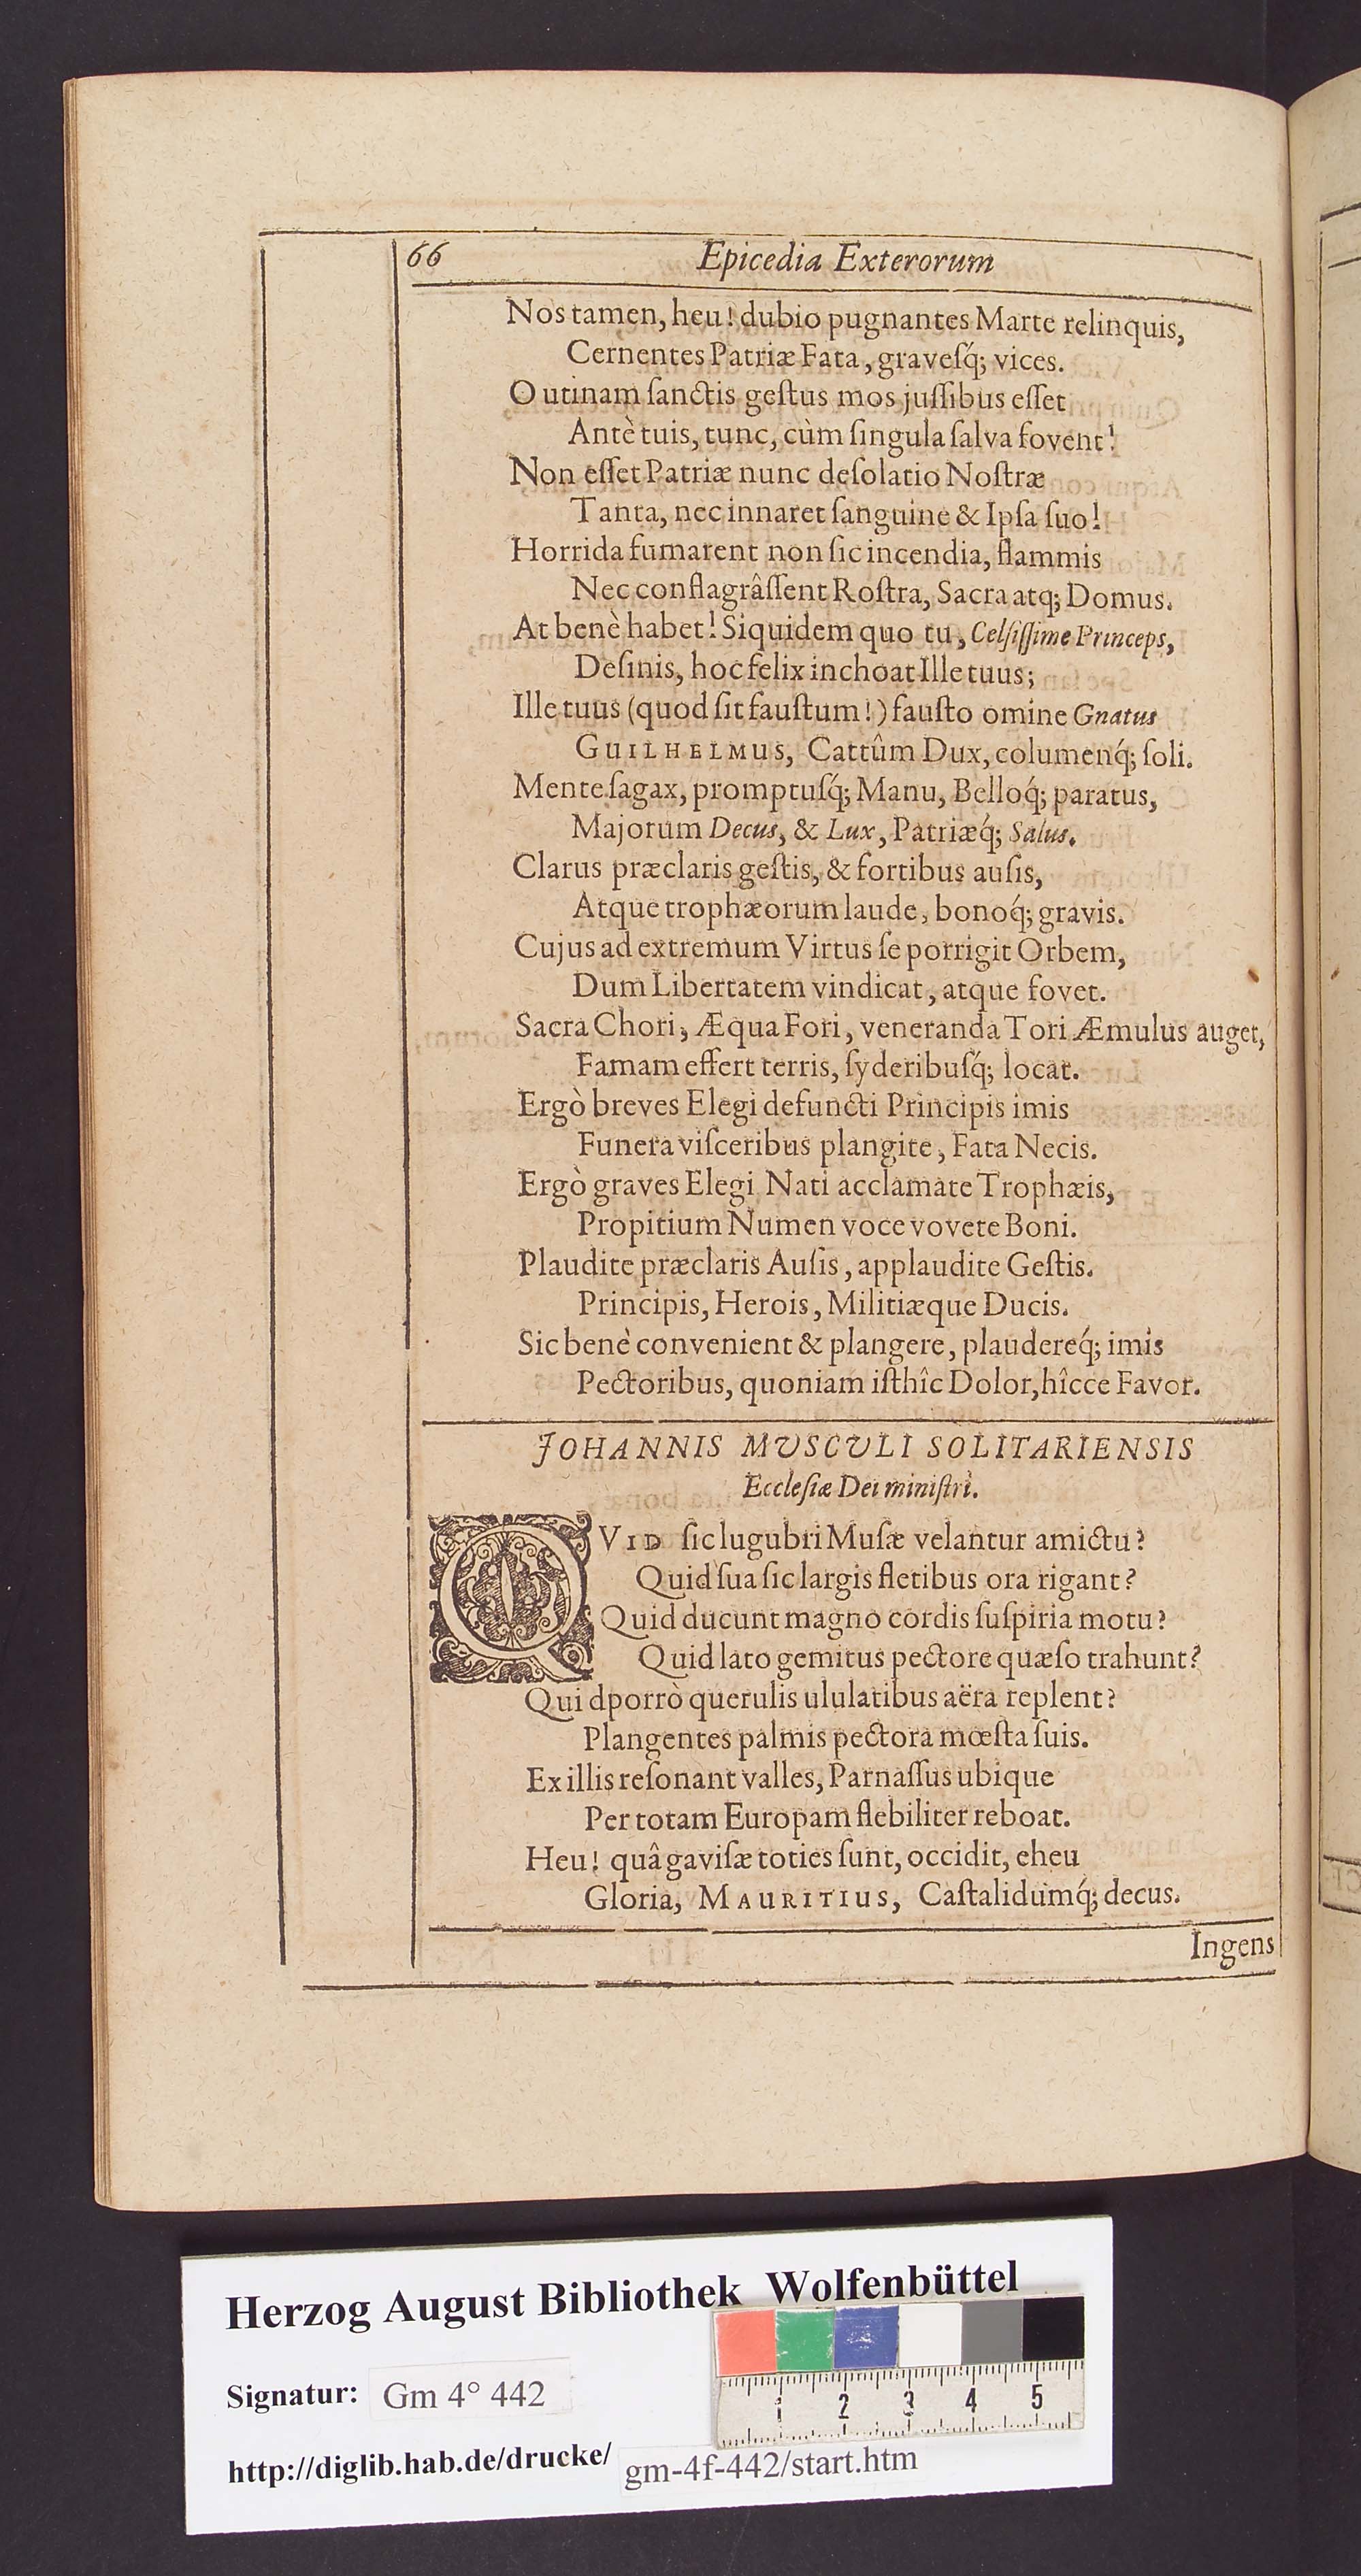 66 Epicedia Exterorum
Nos tamen, heu! dubio pugnantes Marte relinquis,
Cernentes Patriæ Fata, graveſq́; vices.
O utinam ſanctis geſtus mos juſſibus eſſet
Antè tuis, tunc, cùm ſingula ſalva fovent!
Non eſſet Patriæ nunc deſolatio Noſtræ
Tanta, nec innaret ſanguine & Ipſa ſuo!
Horrida fumarent non ſic incendia, flammis
Nec conflagrâſſent Roſtra, Sacra atq; Domus.
At benè habet! Siquidem quo tu, Celſiſſime Princeps,
Deſinis, hoc felix inchoat Ille tuus;
Ille tuus (quod ſit fauſtum!) fauſto omine Gnatus
GUILHELMUS, Cattûm Dux, columenq́; ſoli.
Mente ſagax, promptuſq́; Manu, Belloq́; paratus,
Majorum Decus, & Lux, Patriæq́; Salus.
Clarus præclaris geſtis, & fortibus auſis,
Atque trophæorum laude, bonoq́; gravis.
Cujus ad extremum Virtus ſe porrigit Orbem,
Dum Libertatem vindicat, atque fovet.
Sacra Chori, Æqua Fori, veneranda Tori Æmulus auget,
Famam effert terris, ſyderibuſq́; locat.
Ergò breves Elegi defuncti Principis imis
Funera viſceribus plangite, Fata Necis.
Ergò graves Elegi Nati acclamate Trophæis,
Propitium Numen voce vovete Boni.
Plaudite præclaris Auſis, applaudite Geſtis.
Principis, Herois, Militiæque Ducis.
Sic benè convenient & plangere, plaudereq́; imis
Pectoribus, quoniam iſthîc Dolor, hîcce Favor.
JOHANNIS MVSCVLI SOLITARIENSIS
Eccleſiæ Dei miniſtri.
QVID ſic lugubri Muſæ velantur amictu?
Quid ſua ſic largis fletibus ora rigant?
Quid ducunt magno cordis ſuſpiria motu?
Quid lato gemitus pectore quæſo trahunt?
Qui dporrò querulis ululatibus aëra replent?
Plangentes palmis pectora mœſta ſuis.
Ex illis reſonant valles, Parnaſſus ubique
Per totam Europam flebiliter reboat.
Heu! quâ gaviſæ toties ſunt, occidit, eheu
Gloria, MAURITIUS, Caſtalidumq́; decus.
Ingens
Herzog August Bibliothek Wolfenbüttel
Signatur: Gm 4° 442
1 2 3 4 5
http://diglib.hab.de/drucke/ gm-4f-442/start.htm